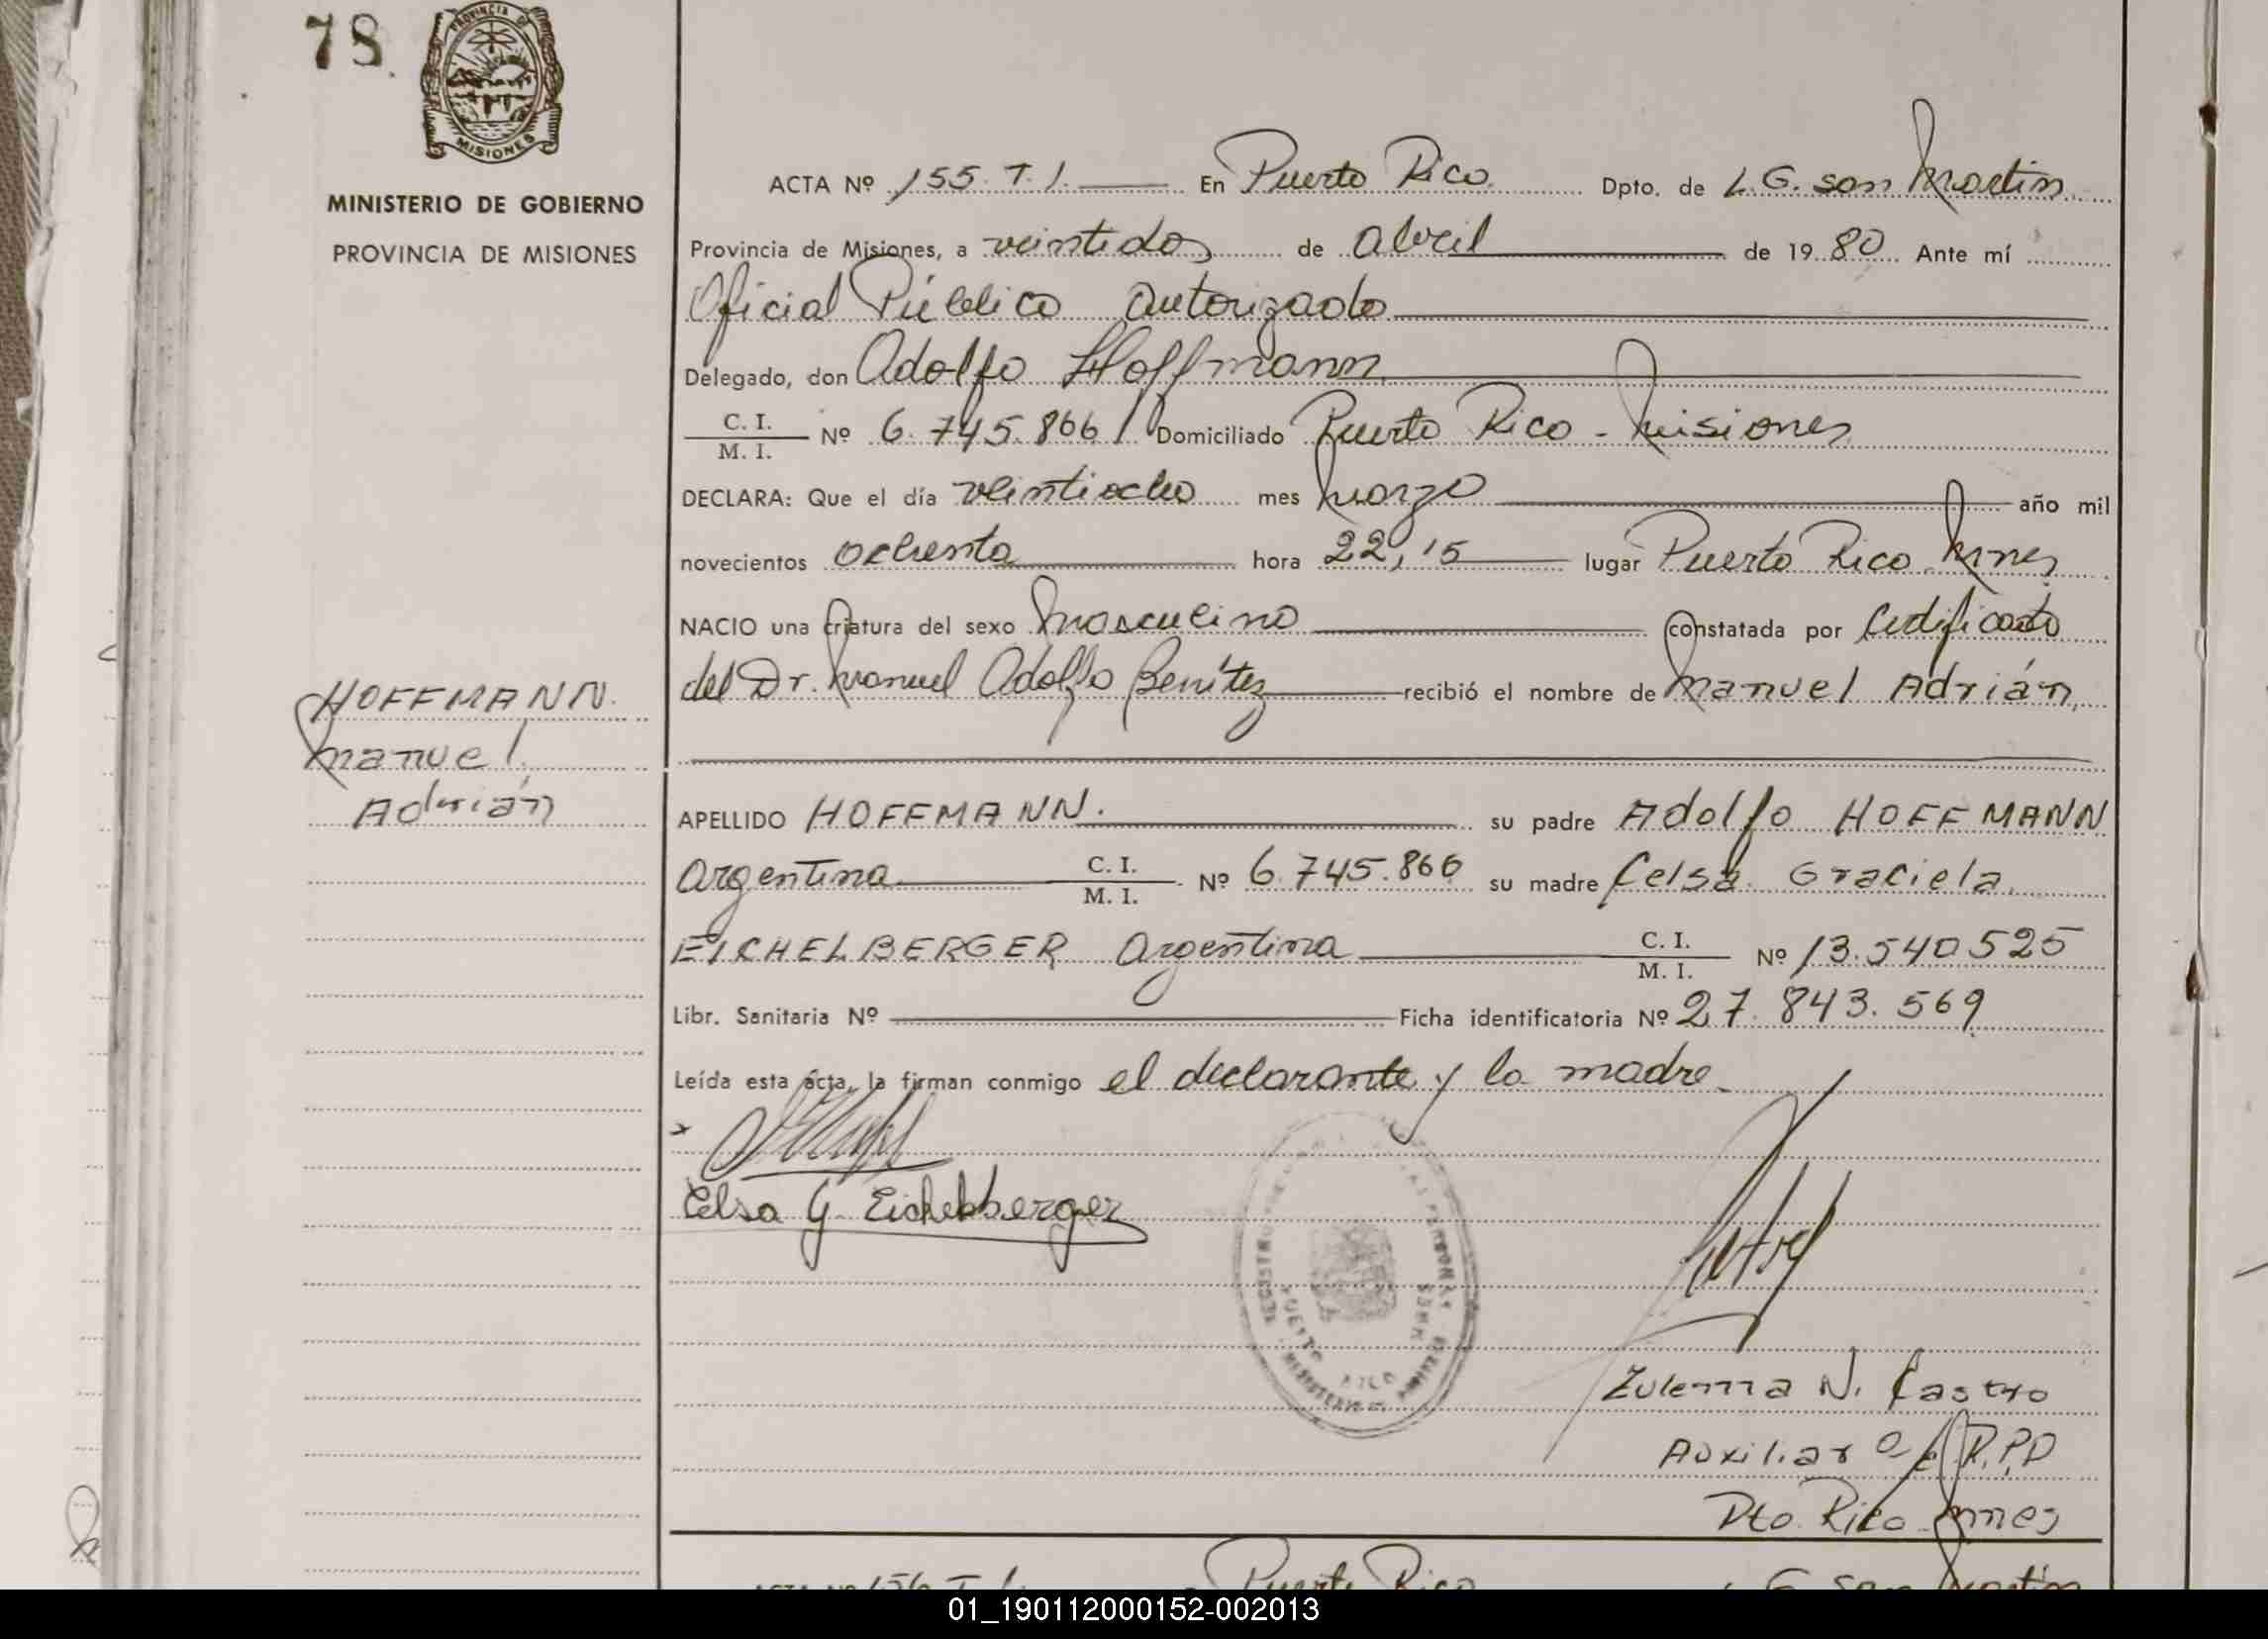 78.
PROVINCIA DE
MISIONES
MINISTERIO DE GOBIERNO
PROVINCIA DE MISIONES
HOFFMANN.
Manuel
Adrián
ACTA Nº 155. T. 1. En Puerto Rico Dpto. de L. G. San Martin
Provincia de Misiones, a veintidos de abril de 1980 Ante mí
Oficial Público Autorizado
Delegado, don Adolfo Hoffmann
C. I.
M. I. Nº 6.745.866 Domiciliado Puerto Rico - Misiones
DECLARA: Que el día veintiocho mes marzo año mil
novecientos ochenta hora 22,15 lugar Puerto Rico Mnes
NACIO una criatura del sexo masculino constatada por Certificado
del Dr. Manuel Adolfo Benítez recibió el nombre de Manuel Adrián
APELLIDO HOFFMANN. su padre Adolfo HOFFMANN
Argentina C. I.
M. I. Nº 6.745.866 su madre Celsa Graciela
EICHELBERGER Argentina C. I.
M. I. Nº 13.540525
Libr. Sanitaria Nº Ficha identificatoria Nº 27.843.569
Leída esta acta, la firman conmigo el declarante y la madre.
Celsa G. Eichelberger
Zulema N. Castro
Auxiliar R.P.P
Pto. Rico Mnes
Puerto Rico G. San Martin
01_190112000152-002013